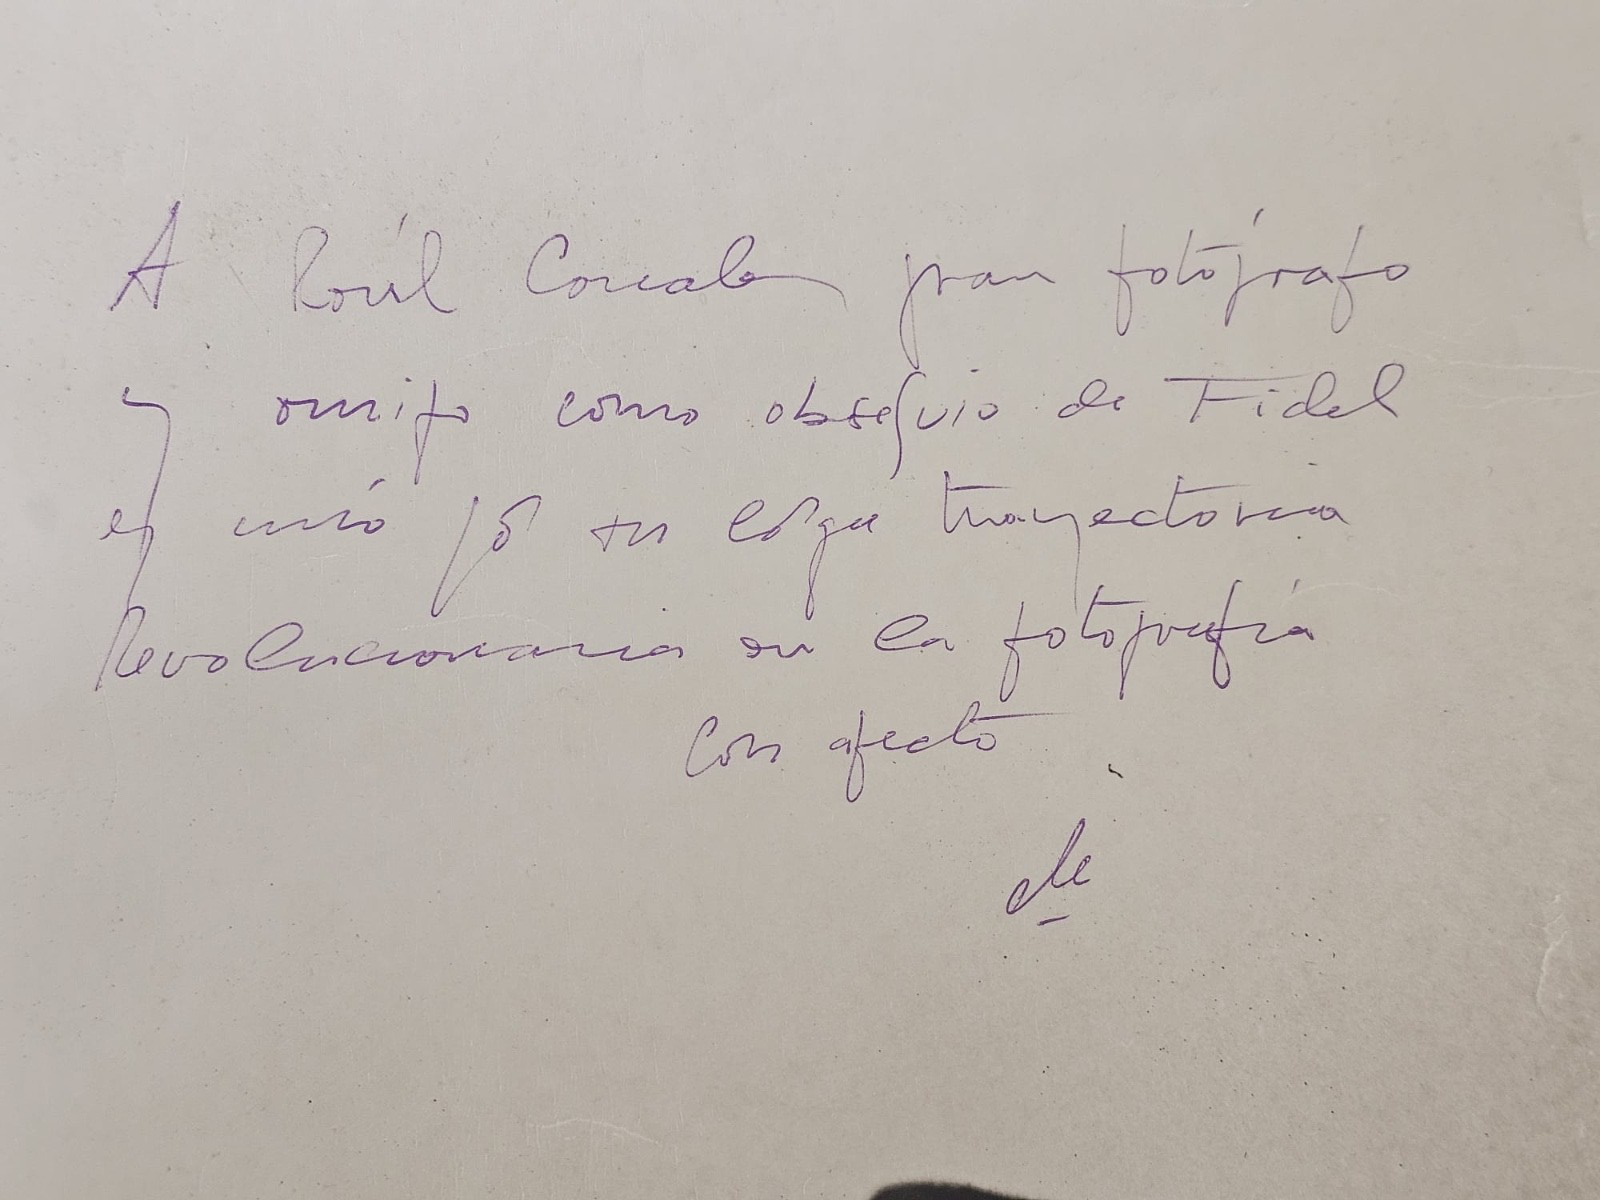 A Raúl Corrales gran fotógrafo
y amigo como obsequio de Fidel
y mío su trayectoria
Revolucionaria en la fotografía
con afecto
Che